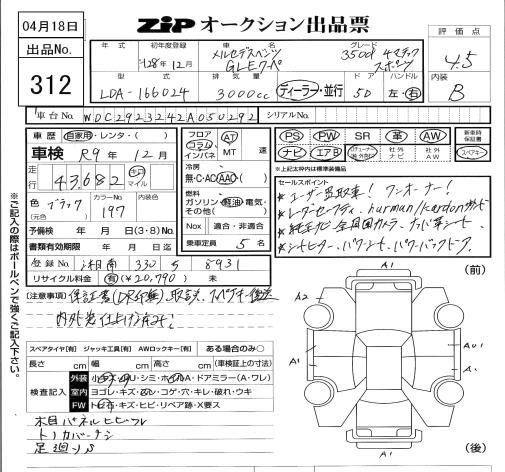 04月18日
ZiPオークション出品票
出品No.
312
評価点
4.5
内装
B
年式 初年度登録 車名 グレード
H28年12月 メルセデスベンツ GLEクーペ 350d 4マチック スポーツ
型式 排気量 ドア ハンドル
LDA-166024 3000cc ディーラー・並行 5D 左・右
車台No. WDC2923242A050292 シリアルNo.
車歴 自家用・レンタ・( )
車検 R9年12月
走行 43,682 キロ マイル
色(元色) ブラック カラーNo. 197 内装色
予備検 年 月 日(3・8)No.
書類有効期限 年 月 日迄
登録No. 湘南 330 す 8931
リサイクル料金 有(¥20,790) 未
フロア コラム インパネ AT MT 速
冷房 無・C・AC・AAC
燃料 ガソリン・軽油・電気・その他( )
Nox 適合・非適合
乗車定員 5名
PS PW SR 革 AW 新車時保証書
ナビ エアB 社外ナビ 社外AW スペアキー
※上記太枠内は標準装備品
セールスポイント
★ユーザー買取車! ワンオーナー!
★レーダーセーフティ、harman/kardon
★純正ナビ 全周囲カメラ
★シートヒーター、パワーシート、パワーバックドア
[注意事項]保証書(DR印無)、取説、スペアキー後送
内外装仕上げ済み!
スペアタイヤ[有] ジャッキ工具[有] AWロックキー[有] ある場合のみ○
長さ cm 幅 cm 高さ cm (車検証上の寸法)
検査記入
外装 小キズ・小U・シミ・ホイルA・ドアミラー(A・ワレ)
室内 ヨゴレ・キズ・スレ・コゲ・穴・キレ・破れ・ウキ
FW トビ石・キズ・ヒビ・リペア跡・X要ス
木目パネルヒビワレ
足廻りS
※ご記入の際はボールペンで強くご記入下さい。
(前)
A1
A2
A1
A1
A1
A1
(後)